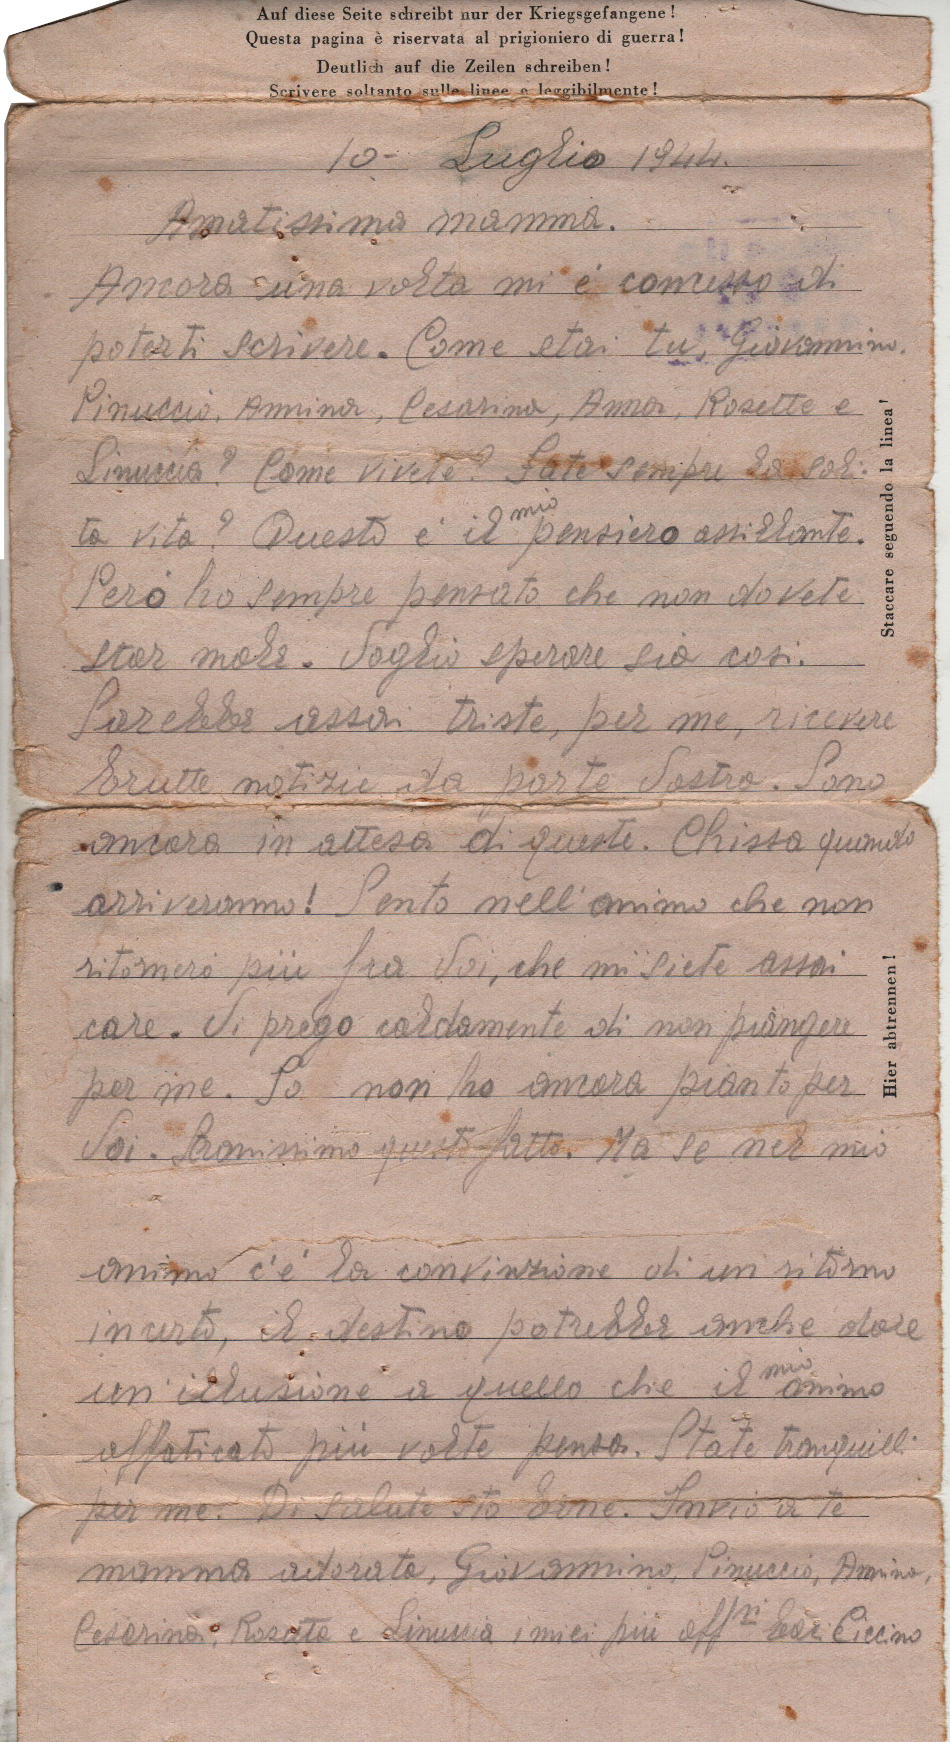 Auf diese Seite schreibt nur der Kriegsgefangene!
Questa pagina è riservata al prigioniero di guerra!
Deutlich auf die Zeilen schreiben!
Scrivere soltanto sulle linee e leggibilmente!
10- Luglio 1944.
Amatissima mamma.
Ancora una volta mi é concesso di
poterti scrivere. Come stai tu, Giovannino,
Pinuccio, Annina, Cesarina, Anna, Rosetta e
Linuccia? Come vivete? Fate sempre la soli-
ta vita? Questo é il mio pensiero assillante.
Peró ho sempre pensato che non dovete
star male. Voglio sperare sia cosi.
Sarebbe assai triste, per me, ricevere
brutte notizie da parte Vostra. Sono
ancora in attesa di queste. Chissa quando
arriveranno! Sento nell'animo che non
ritorneró piú fra Voi, che mi siete assai
care. Vi prego caldamente di non piangere
per me. Io non ho ancora pianto per
Voi. Stranissimo questo fatto. Ma se nel mio
animo c'é la convinzione di un ritorno
incerto, il destino potrebbe anche dare
un'illusione a quello che il mio animo
affaticato piú volte pensa. State tranquilli
per me. Di salute sto bene. Invio a te
mamma adorata, Giovannino, Pinuccio, Annina,
Cesarina, Rosetta e Linuccia i miei piú aff.ri baci Ciccino
Staccare seguendo la linea!
Hier abtrennen!